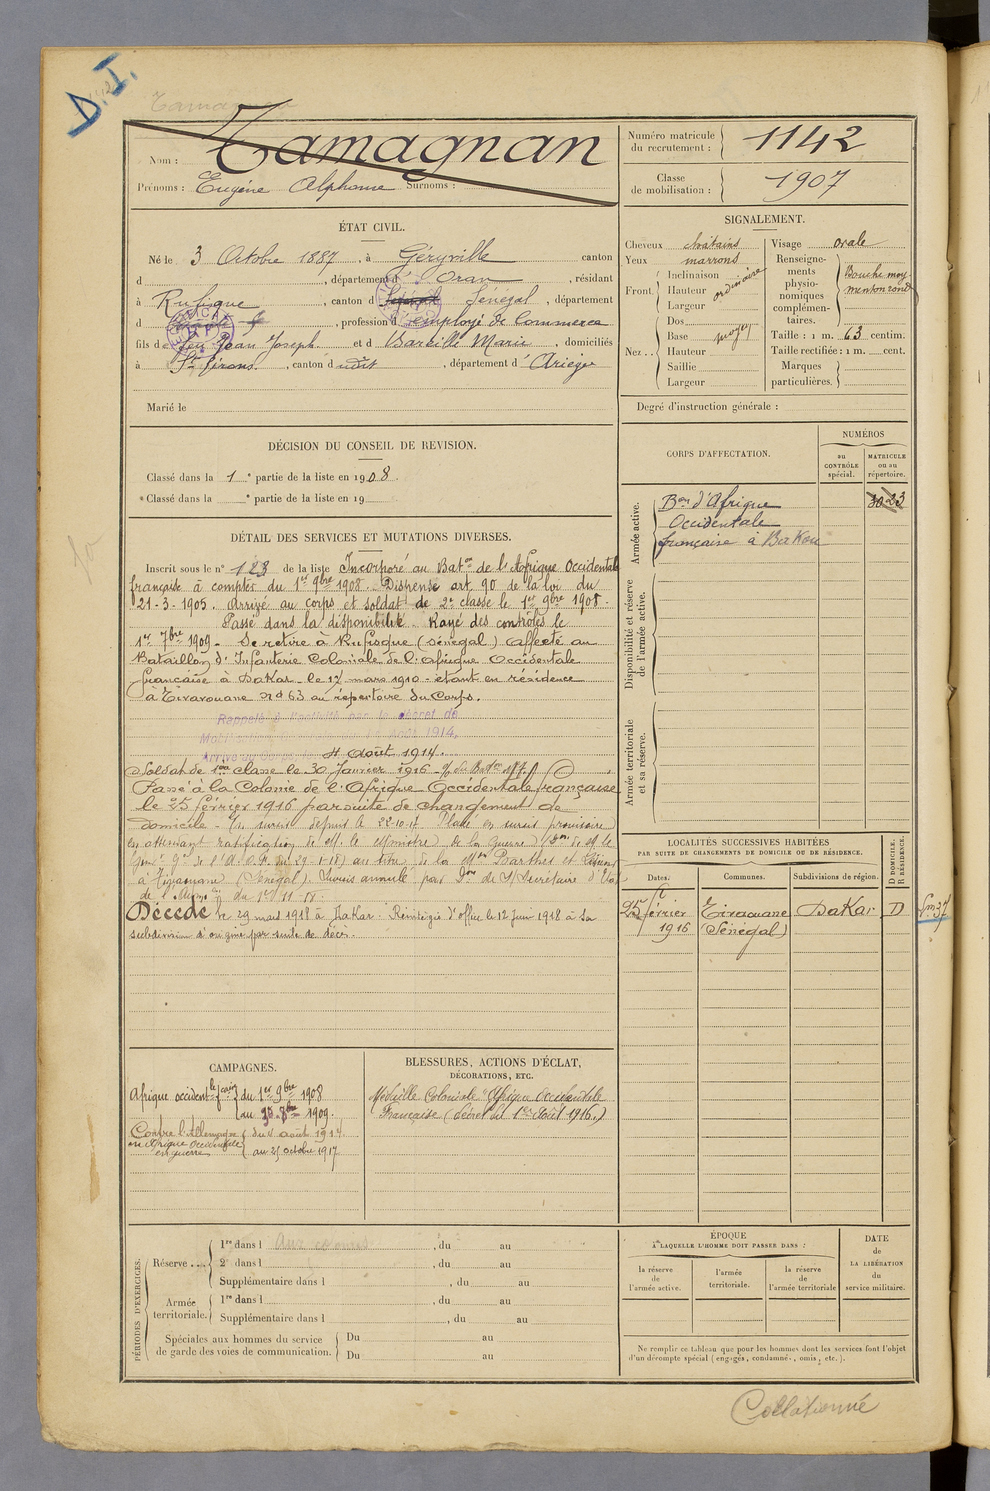 D.I.
Tamagnan
Nom : Tamagnan
Prénoms : Eugène Alphonse Surnoms :
Numéro matricule du recrutement : 1142
Classe de mobilisation : 1907
ÉTAT CIVIL.
Né le 3 Octobre 1887, à Géryville canton
d , département d'Oran, résidant
à Rufisque, canton d Sénégal, département
d , profession d'employé de Commerce
fils de feu Jean Joseph et d Bareille Marie, domiciliés
à St Girons, canton d udit, département d'Ariège
Marié le
SIGNALEMENT.
Cheveux chatains
Yeux marrons
Front. Inclinaison
Hauteur ordinaire
Largeur
Nez.. Dos
Base moyen
Hauteur
Saillie
Largeur
Visage ovale
Renseignements physionomiques complémentaires. Bouche moy.
menton rond
Taille : 1 m. 63 centim.
Taille rectifiée : 1 m. cent.
Marques particulières.
Degré d'instruction générale :
DÉCISION DU CONSEIL DE REVISION.
Classé dans la 1e partie de la liste en 1908.
Classé dans la e partie de la liste en 19
CORPS D'AFFECTATION.
NUMÉROS
au CONTRÔLE spécial.
MATRICULE ou au répertoire.
Armée active.
Bon d'Afrique
Occidentale
française à Dakar
Disponibilité et réserve de l'armée active.
Armée territoriale et sa réserve.
DÉTAIL DES SERVICES ET MUTATIONS DIVERSES.
Inscrit sous le n° 123 de la liste Incorporé au Baton de l'Afrique Occidentale
française à compter du 1er 9bre 1908. Dispensé art. 90 de la loi du
21-3-1905. Arrivé au corps et soldat de 2e classe le 1er 9bre 1908.
Passé dans la disponibilité. Rayé des contrôles le
1er 7bre 1909 - Se retire à Rufisque (Sénégal) affecté au
Bataillon d'Infanterie Coloniale de l'Afrique Occidentale
française à Dakar - le 17 mars 1910 - étant en résidence
à Tivaouane n° 63 au répertoire du Corps.
Rappelé à l'activité par le décret de
Mobilisation Août 1914.
Arrivé au Corps le 4 Août 1914.
Soldat de 1ère classe le 30 Janvier 1916
Passé à la Colonie de l'Afrique Occidentale française
le 25 février 1916 par suite de changement de
domicile - En sursis depuis le 22-10-17 Placé en sursis provisoire
en attendant ratification de M. le Ministre de la Guerre
à Tivaouane (Sénégal). Sursis annulé
Décédé le 29 mars 1918 à Dakar. Réintégré d'office le 12 juin 1918 à sa
subdivision d'origine par suite de décès.
LOCALITÉS SUCCESSIVES HABITÉES
PAR SUITE DE CHANGEMENTS DE DOMICILE OU DE RÉSIDENCE.
Dates. Communes. Subdivisions de région. D DOMICILE. R RÉSIDENCE.
25 février Tivaouane Dakar D
1916 (Sénégal)
CAMPAGNES.
Afrique occident. fçaise du 1er 9bre 1908
au 1909.
Contre l'Allemagne du 4 août 1914
en Afrique Occidentale
en guerre au 21 octobre 1917
BLESSURES, ACTIONS D'ÉCLAT,
DÉCORATIONS, ETC.
Médaille Coloniale "Afrique Occidentale
Française (décret du 1er Août 1916.)
PÉRIODES D'EXERCICES.
Réserve....
1re dans l Aux colonies, du au
2e dans l , du au
Supplémentaire dans l , du au
Armée territoriale.
1re dans l , du au
Supplémentaire dans l , du au
Spéciales aux hommes du service de garde des voies de communication.
Du au
Du au
ÉPOQUE
À LAQUELLE L'HOMME DOIT PASSER DANS :
la réserve de l'armée active.
l'armée territoriale.
la réserve de l'armée territoriale
DATE de LA LIBÉRATION du service militaire.
Ne remplir ce tableau que pour les hommes dont les services font l'objet
d'un décompte spécial (engagés, condamnés, omis, etc.).
Collationné